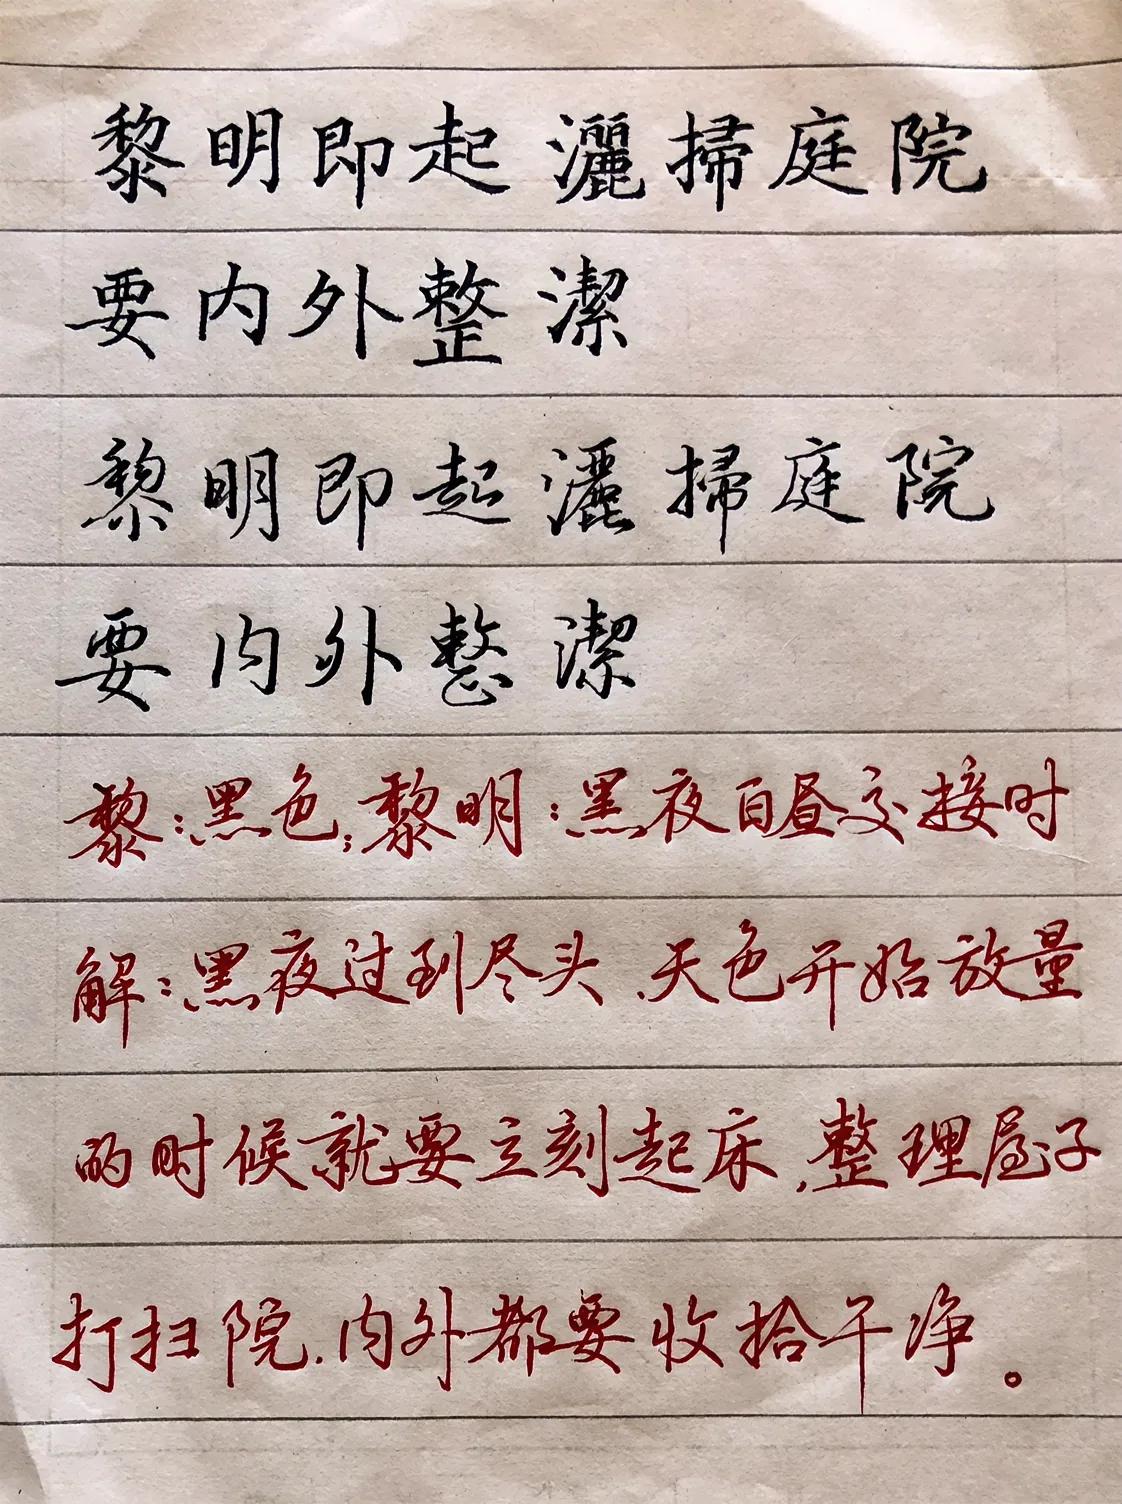 黎明即起灑掃庭院
要内外整潔
黎明即起灑掃庭院
要内外整潔
黎:黑色;黎明:黑夜白昼交接时
解:黑夜过到尽头,天色开始放量
的时候就要立刻起床,整理屋子
打扫院,内外都要收拾干净。